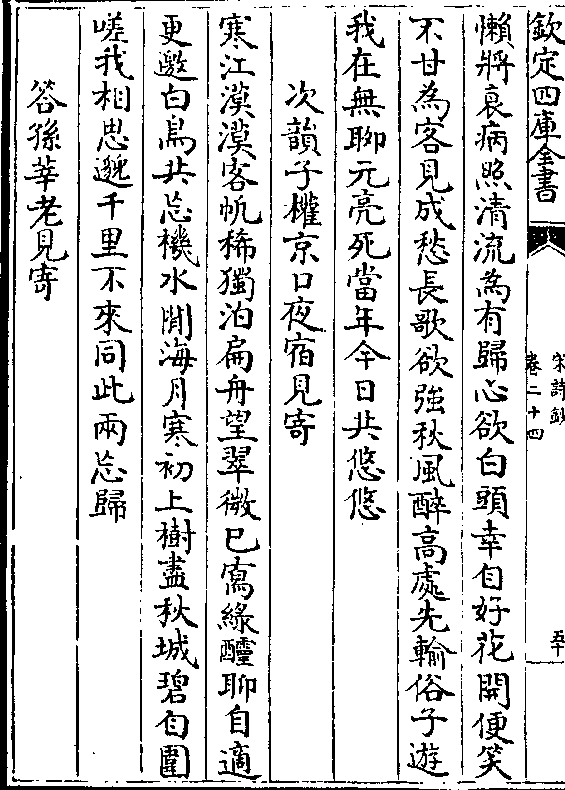 欽定四庫全書
宋詩鈔
卷二十四
五十
懶將衰病照清流為有歸心欲白頭幸自好花開便笑
不甘為客見成愁長歌欲強秋風醉高處先輸俗子遊
我在無聊元亮死當年今日共悠悠
次韻子權京口夜宿見寄
寒江漠漠客帆稀獨泊扁舟望翠微已寫綠醽聊自適
更邀白鳥共忘機水開海月寒初上樹盡秋城碧自圍
嗟我相思邈千里不來同此兩忘歸
答孫莘老見寄